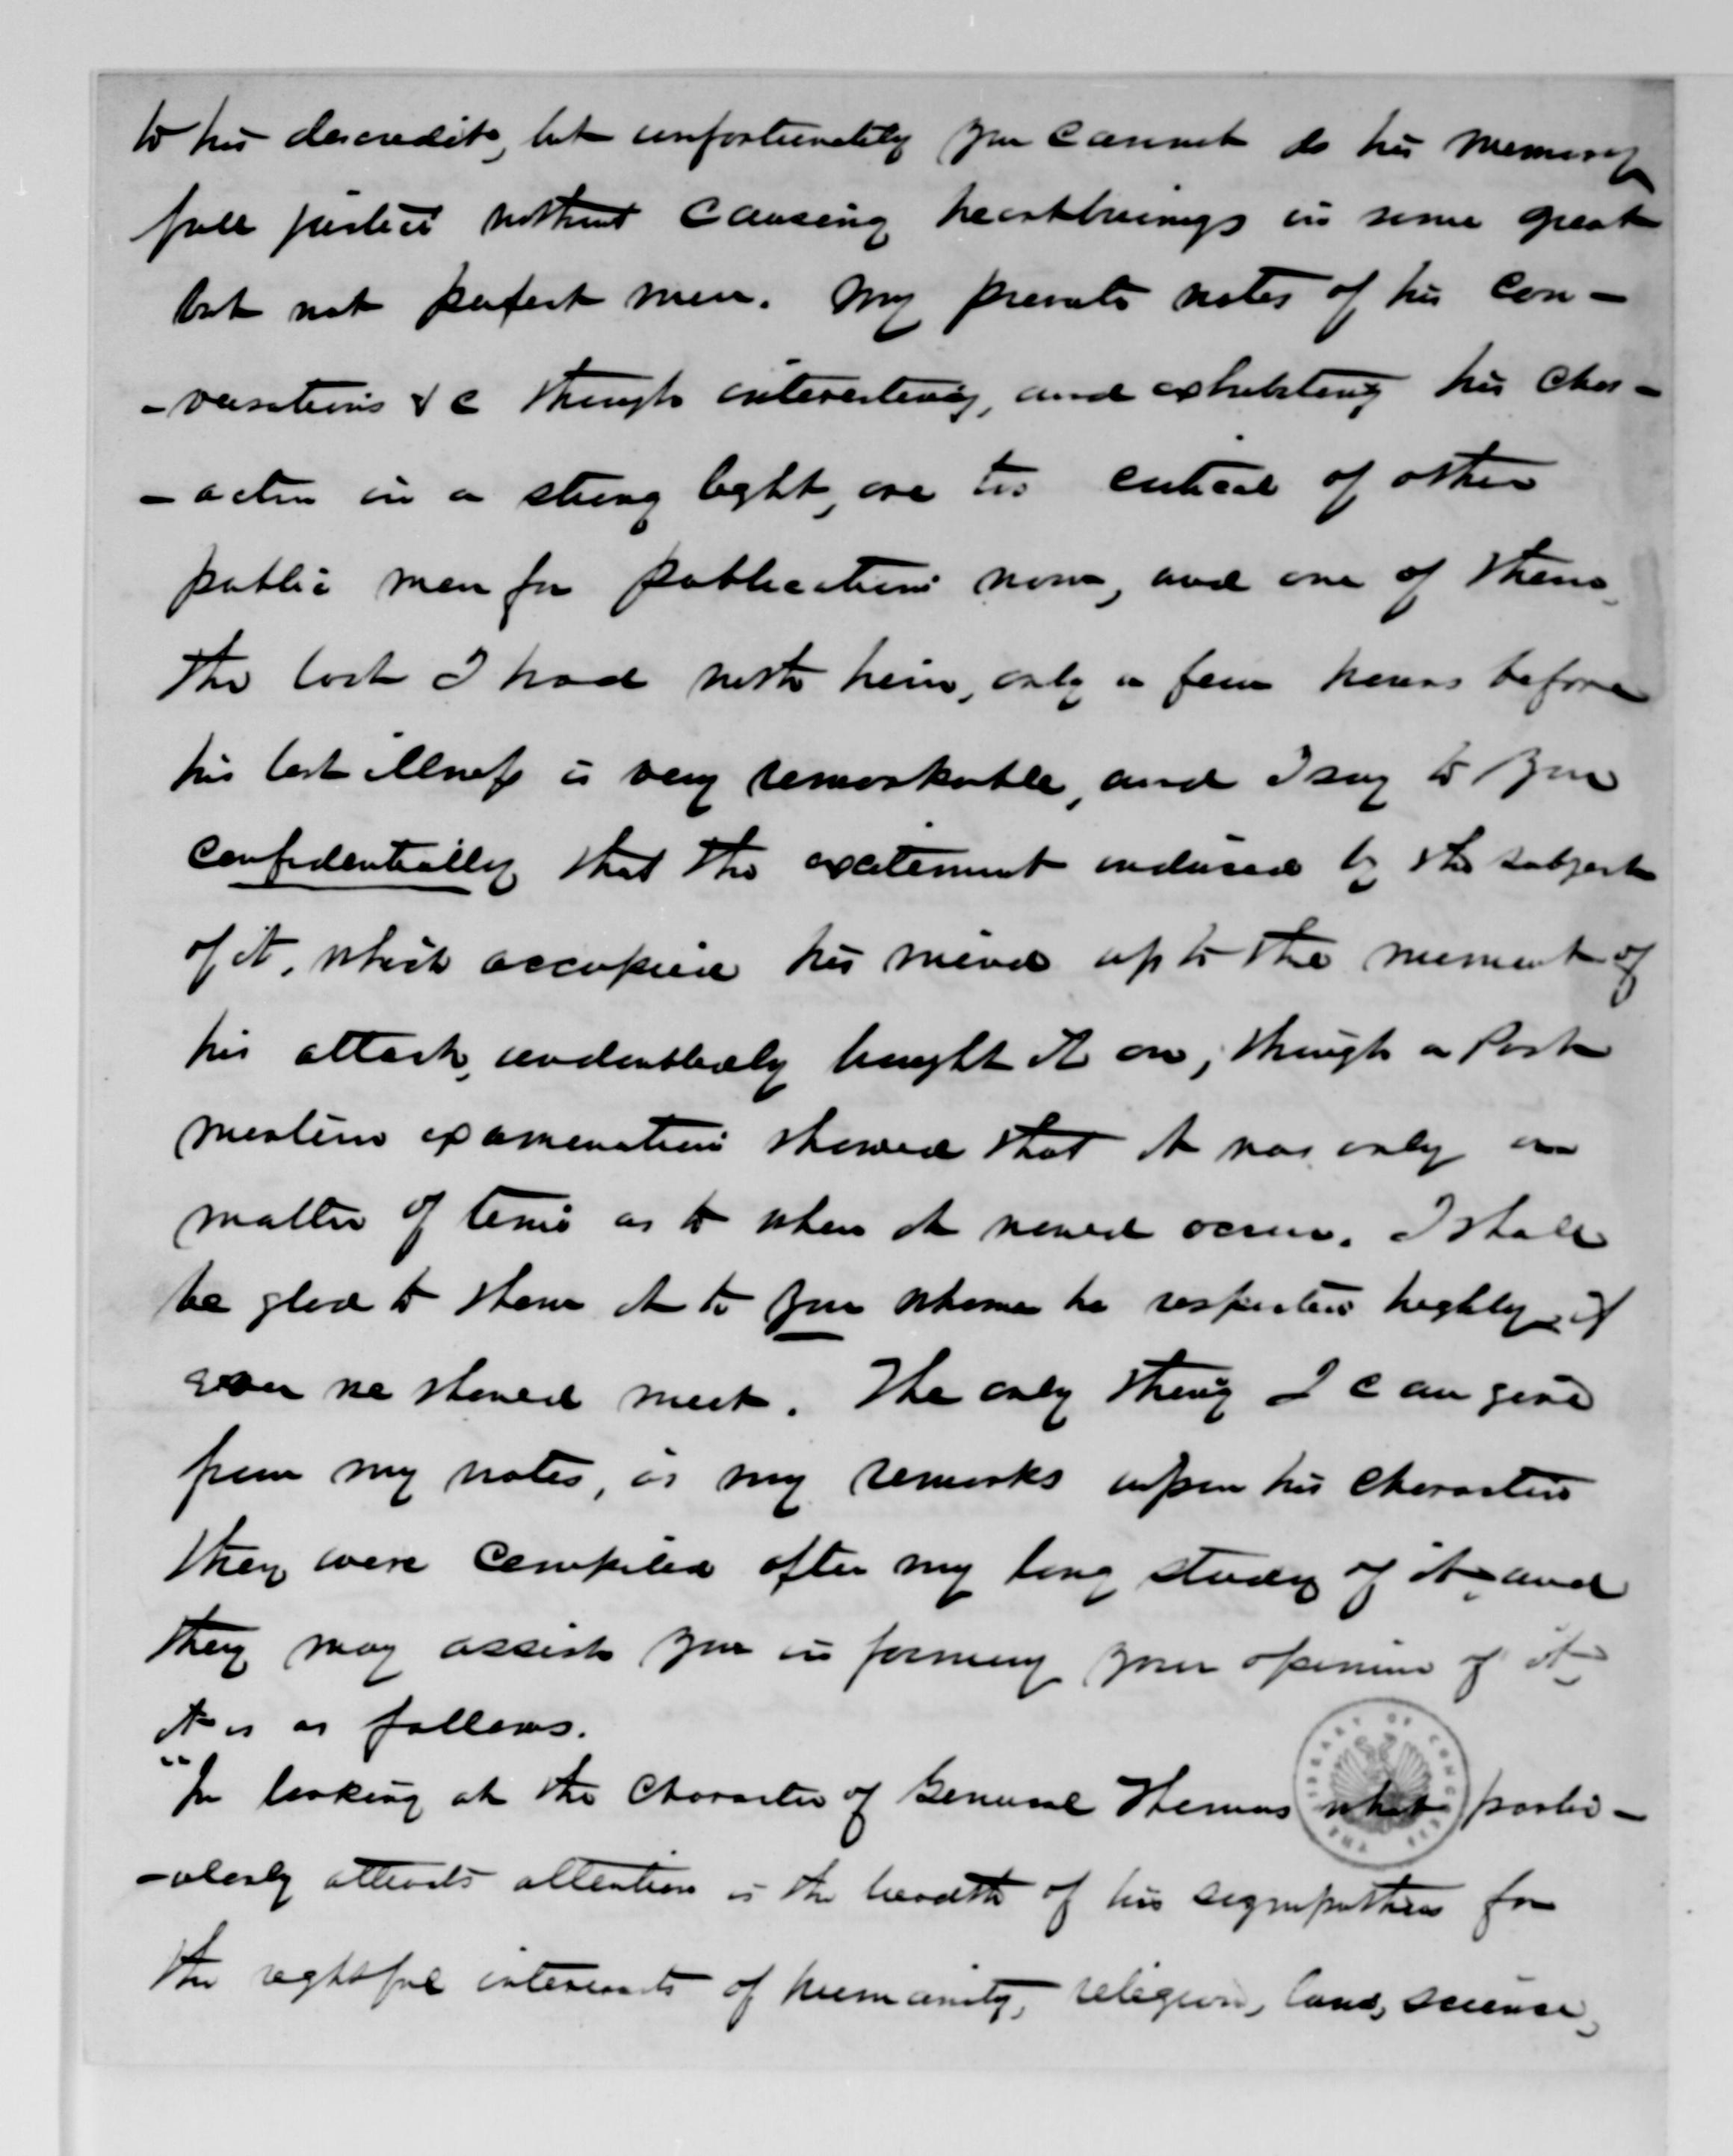 to his discredit, but unfortunately you cannot do his memory
full justice without causing heartburnings in some great
but not perfect men. My private notes of his con-
-versations &c though interesting, and exhibiting his char-
-acter in a strong light, are too critical of other
public men for publication now, and one of them,
the last I had with him, only a few hours before
his last illness is very remarkable, and I say to you
confidentially that the excitement induced by the subject
of it, which occupied his mind up to the moment of
his attack, undoubtedly brought it on, though a Post
mortem examination showed that it was only a
matter of time as to when it would occur. I shall
be glad to show it to you whom he respected highly, if
ever we should meet. The only thing I can give
from my notes, is my remarks upon his character
they were compiled after my long study of it, and
they may assist you in forming your opinion of it,
it is as follows.
"In looking at the Character of General Thomas what partic-
-ularly attracts attention is the breadth of his sympathies for
the rightful interests of humanity, religion, law, science,
LIBRARY OF CONGRESS